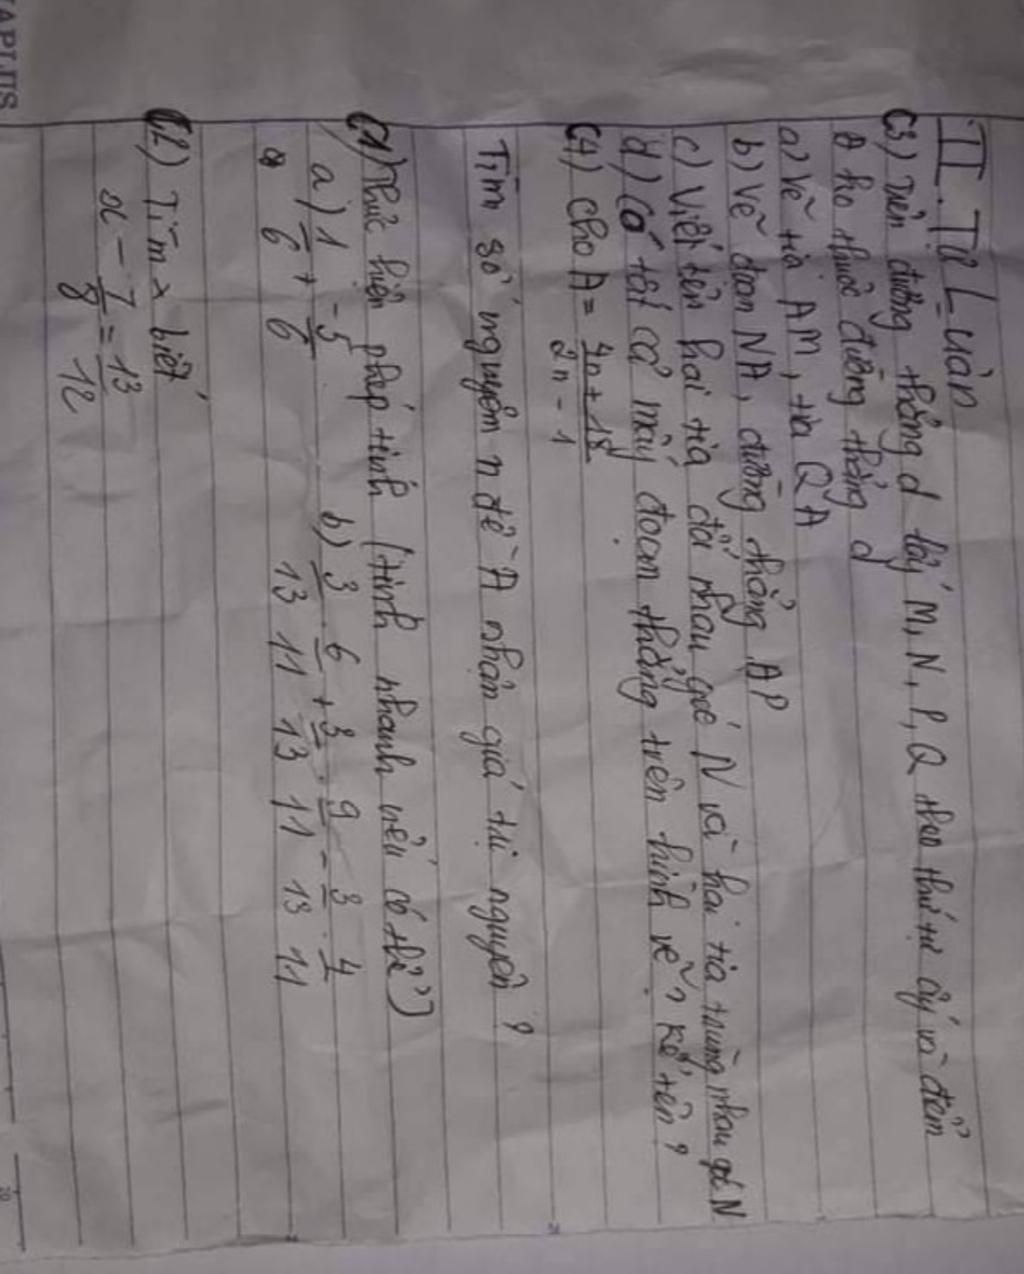 II. Tự Luận
C3) Trên đường thẳng d lấy M, N, P, Q theo thứ tự ấy và điểm
A ko thuộc đường thẳng d
a) Vẽ tia AM, tia QA
b) Vẽ đoạn NA, đường thẳng AP
c) Viết tên hai tia đối nhau gốc N và hai tia trùng nhau gốc N
d) Có tất cả mấy đoạn thẳng trên hình vẽ? kể tên?
C4) Cho A = \frac{4n + 18}{2n - 1}
Tìm số nguyên n để A nhận giá trị nguyên?
C1) Thực hiện phép tính (tính nhanh nếu có thể)
a) \frac{1}{6} + \frac{-5}{6} b) \frac{3}{13} . \frac{6}{11} + \frac{3}{13} . \frac{9}{11} - \frac{3}{13} . \frac{4}{11}
C2) Tìm x biết
x - \frac{7}{8} = \frac{13}{12}